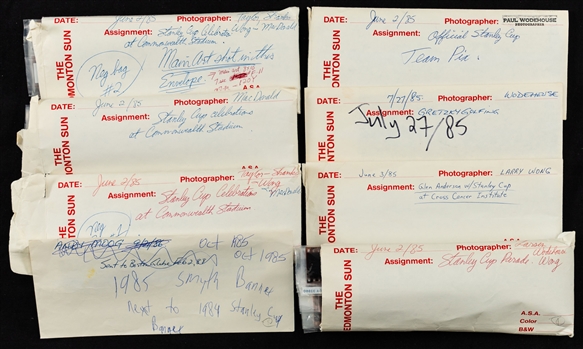 DATE: June 2/85 Photographer: Taylor, Shandro
Assignment: Stanley Cup Celebrations Wong - MacDonald
at Commonwealth Stadium.
Neg bag
#2
Main Art shot in this
Envelope
THE EDMONTON SUN
DATE: June 2/85 Photographer: MacDonald
Assignment: Stanley Cup celebrations
at Commonwealth Stadium.
A.S.A.
THE
DATE: June 2/85 Photographer: Taylor - Shandro
Assignment: Stanley Cup Celebrations - Wong
- MacDonald
at Commonwealth Stadium
Neg
THE
OCT 1985
OCT 1985
1985 Smyth
Banner
Next to 1984 Stanley Cup
Banner
DATE: June 2/85 Photographer: PAUL WODEHOUSE
PHOTOGRAPHER
Assignment: Official Stanley Cup
Team Pix.
THE EDMONTON SUN
DATE: 7/27/85 Photographer: WODEHOUSE
Assignment: GRETZKY GOLFING
July 27/85
THE
DATE: June 3/85 Photographer: LARRY WONG
Assignment: Glen Anderson w/Stanley Cup
at Cross Cancer Institute
THE
DATE: June 2/85 Photographer:
Assignment: Stanley Cup Parade. Wong
THE
EDMONTON SUN
A.S.A.
Color
B&W